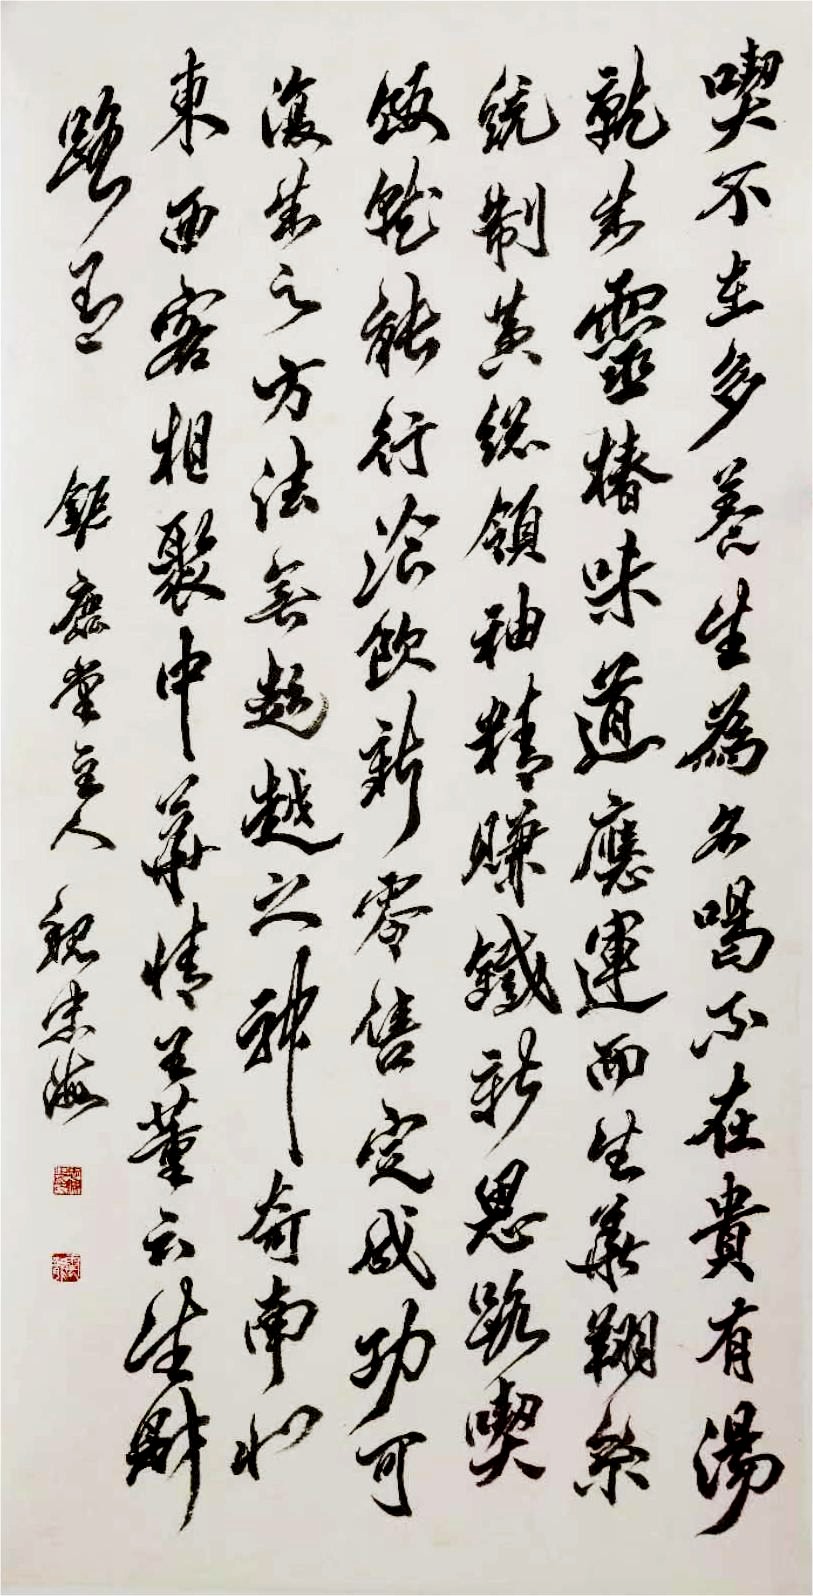 喫不在多養生為名喝不在貴有湯
就生靈椿味道應運而生華翔系
統制黄總領袖精賺鐵新思路喫
飯就能行滄飲新零售定成功可
復生之方法無超越之神奇南北
東西客相聚中華情呈董云生財
路專
鉅鹿堂主人 魏忠海